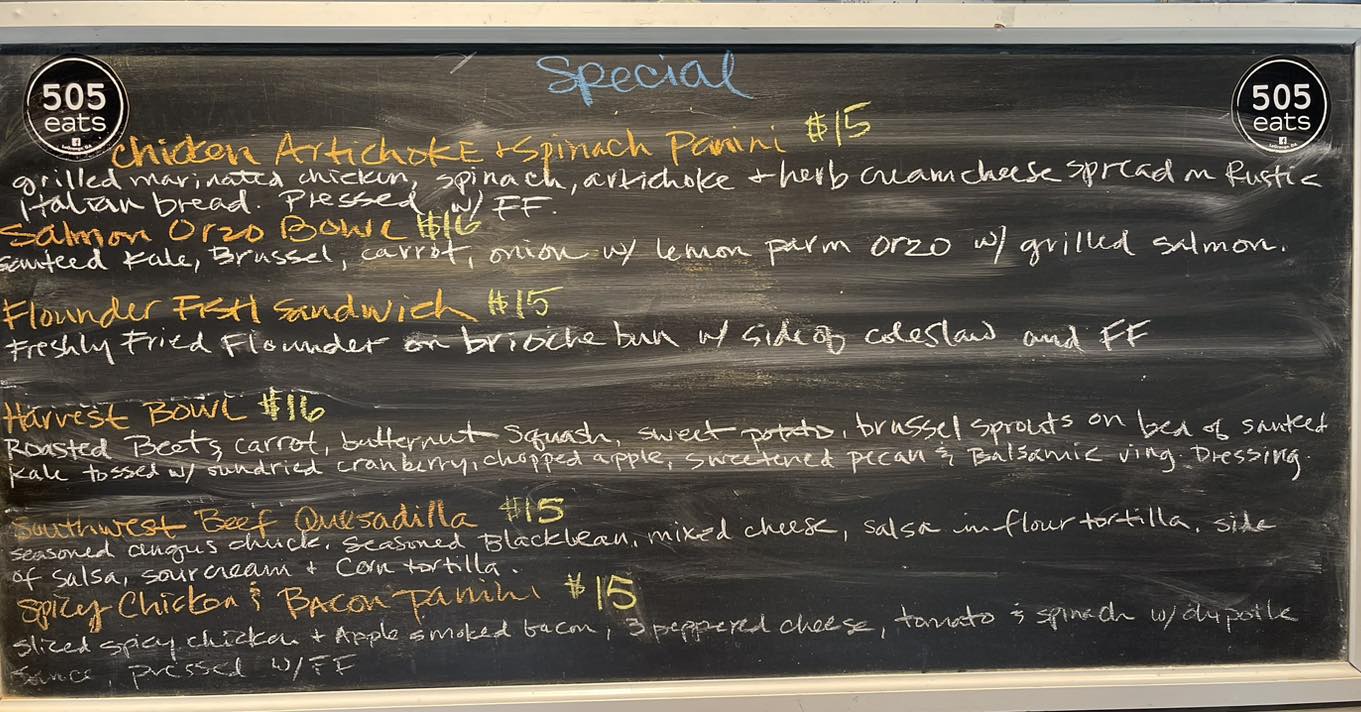 Special
505
eats
LaGrange, GA
505
eats
LaGrange, GA
Chicken Artichoke + Spinach Panini $15
grilled marinated chicken, spinach, artichoke + herb cream cheese spread on Rustic
Italian bread. Pressed w/ FF.
Salmon Orzo Bowl $16
sauteed kale, Brussel, carrot, onion w/ lemon parm orzo w/ grilled salmon.
Flounder Fish Sandwich $15
Freshly Fried Flounder on brioche bun w/ side of coleslaw and FF
Harvest Bowl $16
Roasted Beets, carrot, butternut Squash, sweet potato, brussel sprouts on bed of sauteed
kale tossed w/ sundried cranberry, chopped apple, sweetened pecan & Balsamic ving. Dressing.
Southwest Beef Quesadilla $15
seasoned angus chuck, seasoned Blackbean, mixed cheese, salsa in flour tortilla, side
of salsa, sour cream + corn tortilla.
Spicy Chicken & Bacon Panini $15
sliced spicy chicken + Apple smoked bacon, 3 peppered cheese, tomato & spinach w/ chipotle
sauce, pressed w/ FF